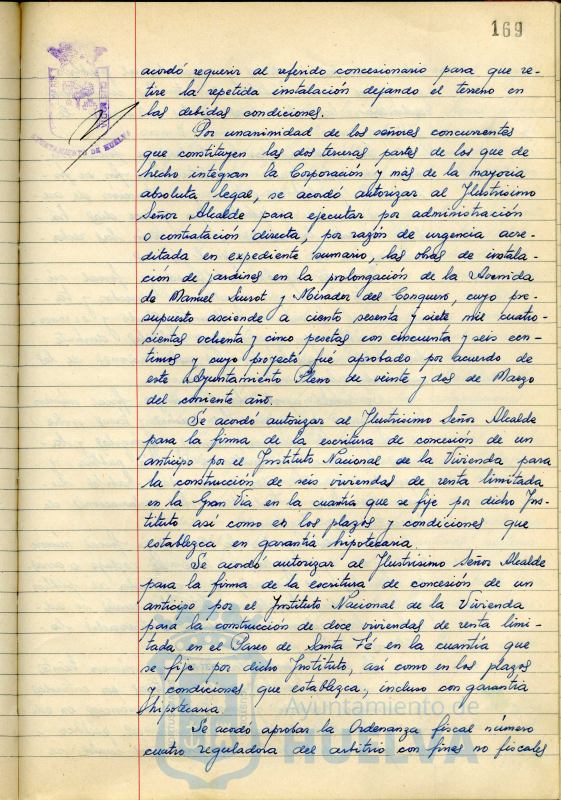 169
AYUNTAMIENTO DE HUELVA
acordó requerir al referido concesionario para que re-
tire la repetida instalación dejando el terreno en
las debidas condiciones.
Por unanimidad de los señores concurrentes
que constituyen las dos terceras partes de los que de
hecho integran la Corporación y más de la mayoria
absoluta legal, se acordó autorizar al Ilustrisimo
Señor Alcalde para ejecutar por administración
o contratación directa, por razón de urgencia acre-
ditada en expediente sumario, las obras de instala-
ción de jardines en la prolongación de la Avenida
de Manuel Siurot y Mirador del Conquero, cuyo pre-
supuesto asciende a ciento sesenta y siete mil cuatro-
cientas ochenta y cinco pesetas con cincuenta y seis cen-
timos y cuyo proyecto fué aprobado por acuerdo de
este Ayuntamiento Pleno de veinte y dos de Marzo
del corriente año.
Se acordó autorizar al Ilustrisimo Señor Alcalde
para la firma de la escritura de concesión de un
anticipo por el Instituto Nacional de la Vivienda para
la construcción de seis viviendas de renta limitada
en la Gran Via en la cuantía que se fije por dicho Ins-
tituto asi como en los plazos y condiciones que
establezca en garantía hipotecaria.
Se acordó autorizar al Ilustrisimo Señor Alcalde
para la firma de la escritura de concesión de un
anticipo por el Instituto Nacional de la Vivienda
para la construcción de doce viviendas de renta limi-
tada en el Paseo de Santa Fé en la cuantía que
se fije por dicho Instituto, así como en los plazos
y condiciones que establezca, incluso con garantia
hipotecaria
Se acodó aprobar la Ordenanza fiscal número
cuatro reguladora del arbitrio con fines no fiscales
Ayuntamiento de
HUELVA